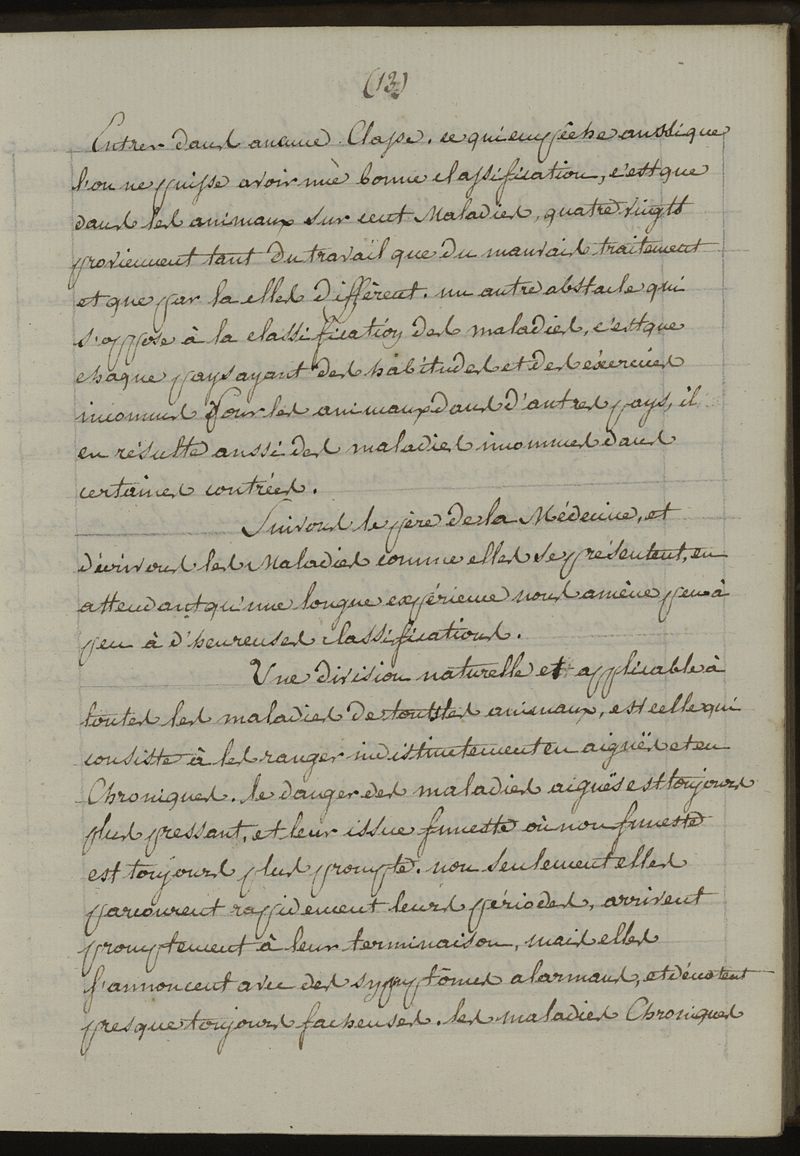 (13)
Entrer dans aucune Classe. ce qui empêche aussi que
l'on ne puisse avoir une bonne classification, c'est que
dans les animaux sur cent Maladies, quatre vingts
proviennent tant du travail que du mauvais traitement
et que par la elles diffèrent. un autre obstacle qui
s'oppose à la classification des maladies, c'est que
chaque pays ayant des habitudes et des exercices
inconnus Pour les animaux dans d'autres pays, il
en résulte aussi des maladies inconnues dans
certaines contrées.
Suivons le père de la Médecine, et
décrivons les Maladies comme elles se présentent, en
attendant qu'une longue expérience nous amène peu à
peu à d'heureuses classifications.
Une division naturelle et applicable à
toutes les maladies de tous les animaux, est celle qui
consiste à les ranger indistinctement en aiguës et en
Chroniques. le danger des maladies aiguës est toujours
plus pressant, et leur issue funeste où non funeste
est toujours plus prompte. non seulement elles
parcourent rapidement leurs périodes, arrivent
promptement à leur terminaison, mais elles
s'annoncent avec des symptômes alarmans, et dénotent
presque toujours facheuses. les maladies Chroniques